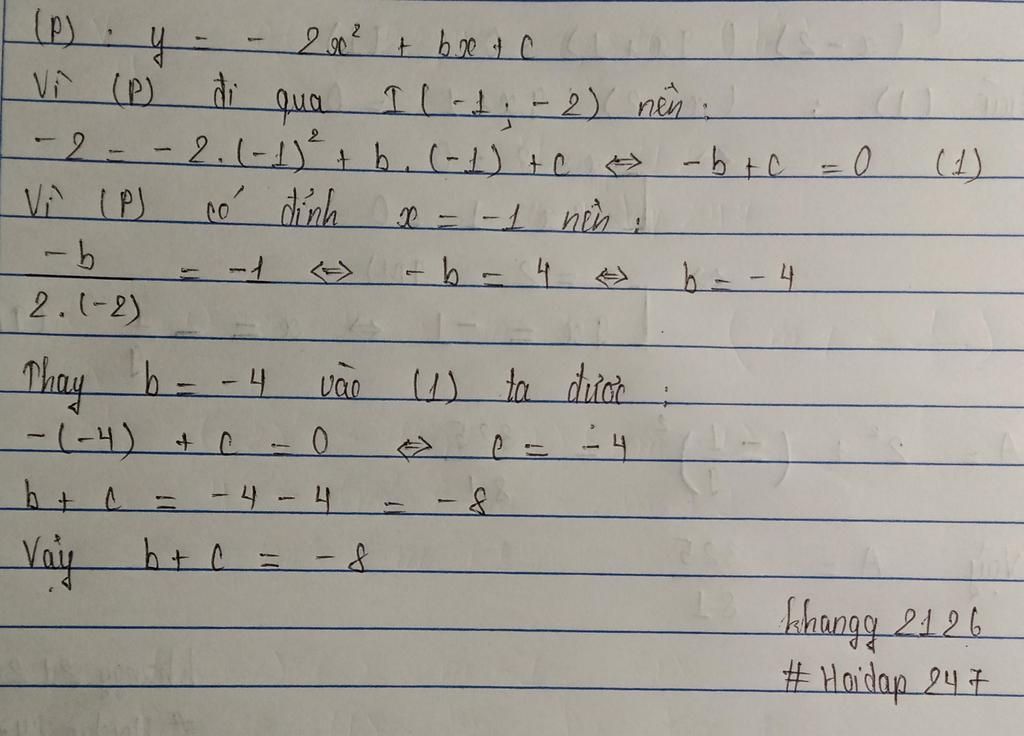 (P) : y = - 2x² + bx + c
Vì (P) đi qua I ( -1 ; -2 ) nên :
-2 = -2.(-1)² + b.(-1) + c ⇔ -b + c = 0 (1)
Vì (P) có đỉnh x = -1 nên :
-b / 2.(-2) = -1 ⇔ -b = 4 ⇔ b = -4
Thay b = -4 vào (1) ta được :
-(-4) + c = 0 ⇔ c = -4
b + c = -4 - 4 = -8
Vậy b + c = -8
khangg 2126
# Hoidap 247